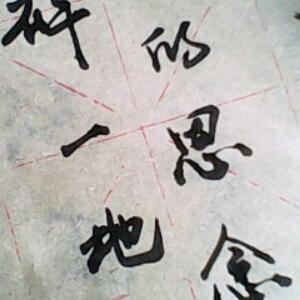 的思念
祥一地